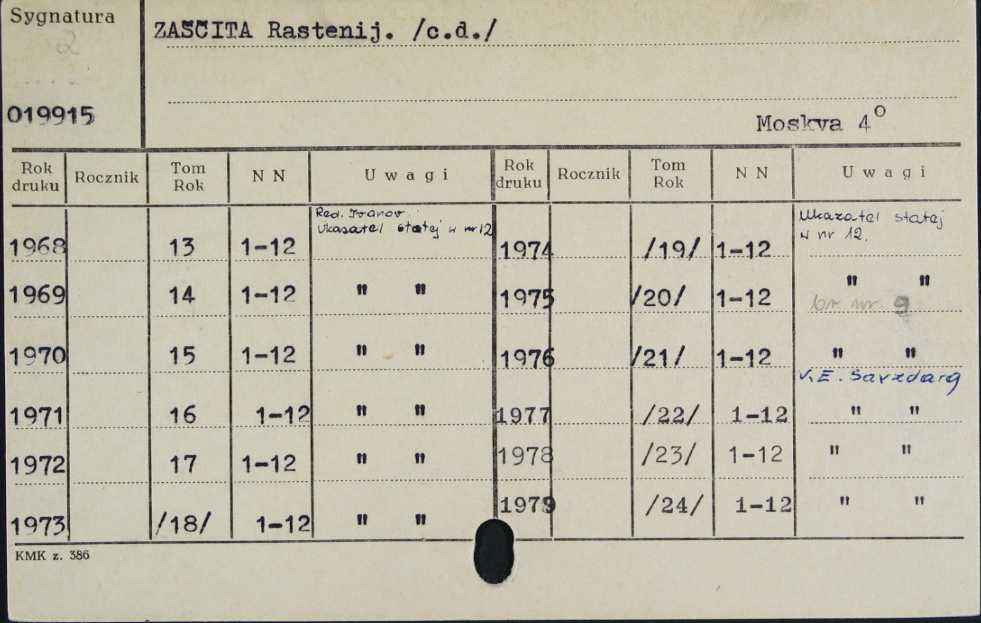 Sygnatura
2
019915
ZAŠČITA Rastenij. /c.d./
Moskva 4º
Rok druku Rocznik Tom Rok N N U w a g i Rok druku Rocznik Tom Rok N N U w a g i
Red. Ivanov
Ukazatel statej w nr 12
Ukazatel statej
w nr 12.
1968 13 1-12 1974 /19/ 1-12
1969 14 1-12 " " 1975 /20/ 1-12 " "
br nr 9
1970 15 1-12 " " 1976 /21/ 1-12 " "
V.E. Savzdarg
1971 16 1-12 " " 1977 /22/ 1-12 " "
1972 17 1-12 " " 1978 /23/ 1-12 " "
1973 /18/ 1-12 " " 1979 /24/ 1-12 " "
KMK z. 386